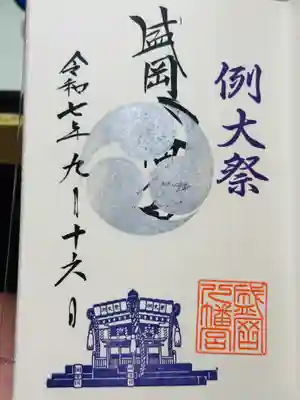 例大祭
盛岡八幡宮
令和七年九月十六日
盛岡
八幡宮